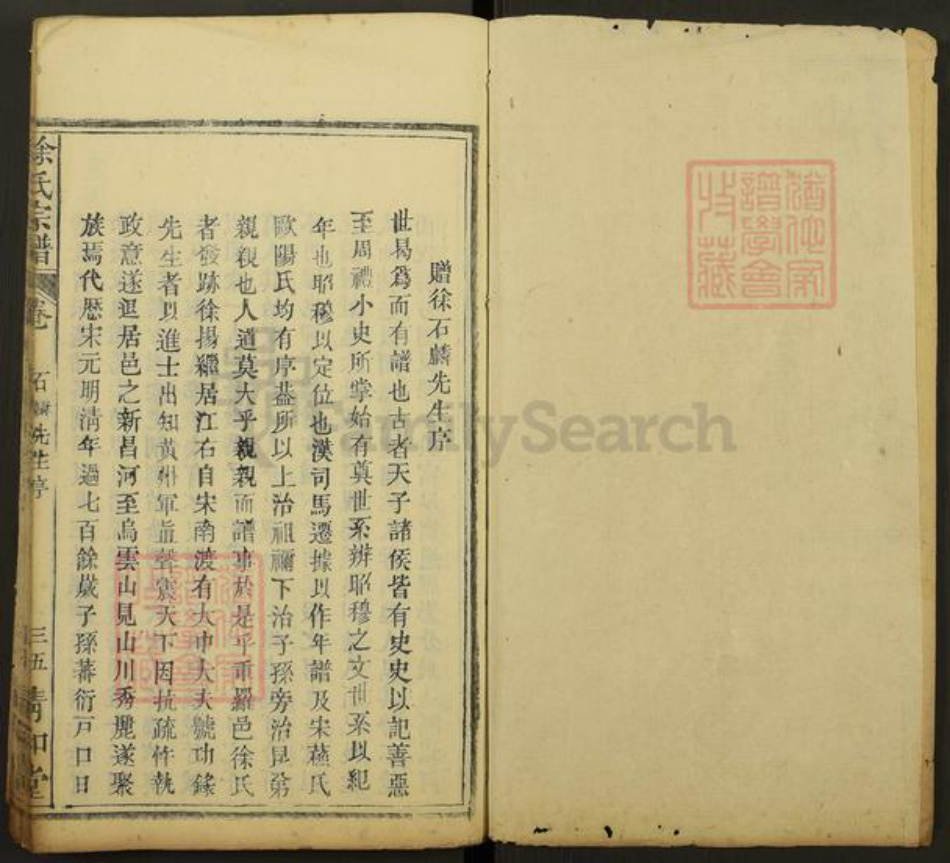 贈徐石麟先生序
世曷爲而有譜也古者天子諸侯皆有史史以記善惡
至周禮小史所掌始有奠世系辨昭穆之文世系以紀
年也昭穆以定位也漢司馬遷據以作年譜及宋蘇氏
歐陽氏均有序蓋所以上治祖禰下治子孫旁治昆弟
親親也人道莫大乎親親而譜事於是乎重羅邑徐氏
者發跡徐揚繼居江右自宋南渡有大中大夫號功錄
先生者以進士出知黃州軍直聲震天下因抗疏忤執
政意遂退居邑之新昌河至烏雲山見山川秀麗遂聚
族焉代歷宋元明淸年過七百餘歲子孫蕃衍戸口日
徐氏宗譜
卷
石麟先生序
三五
淸和堂
譜學會
收藏
FamilySearch